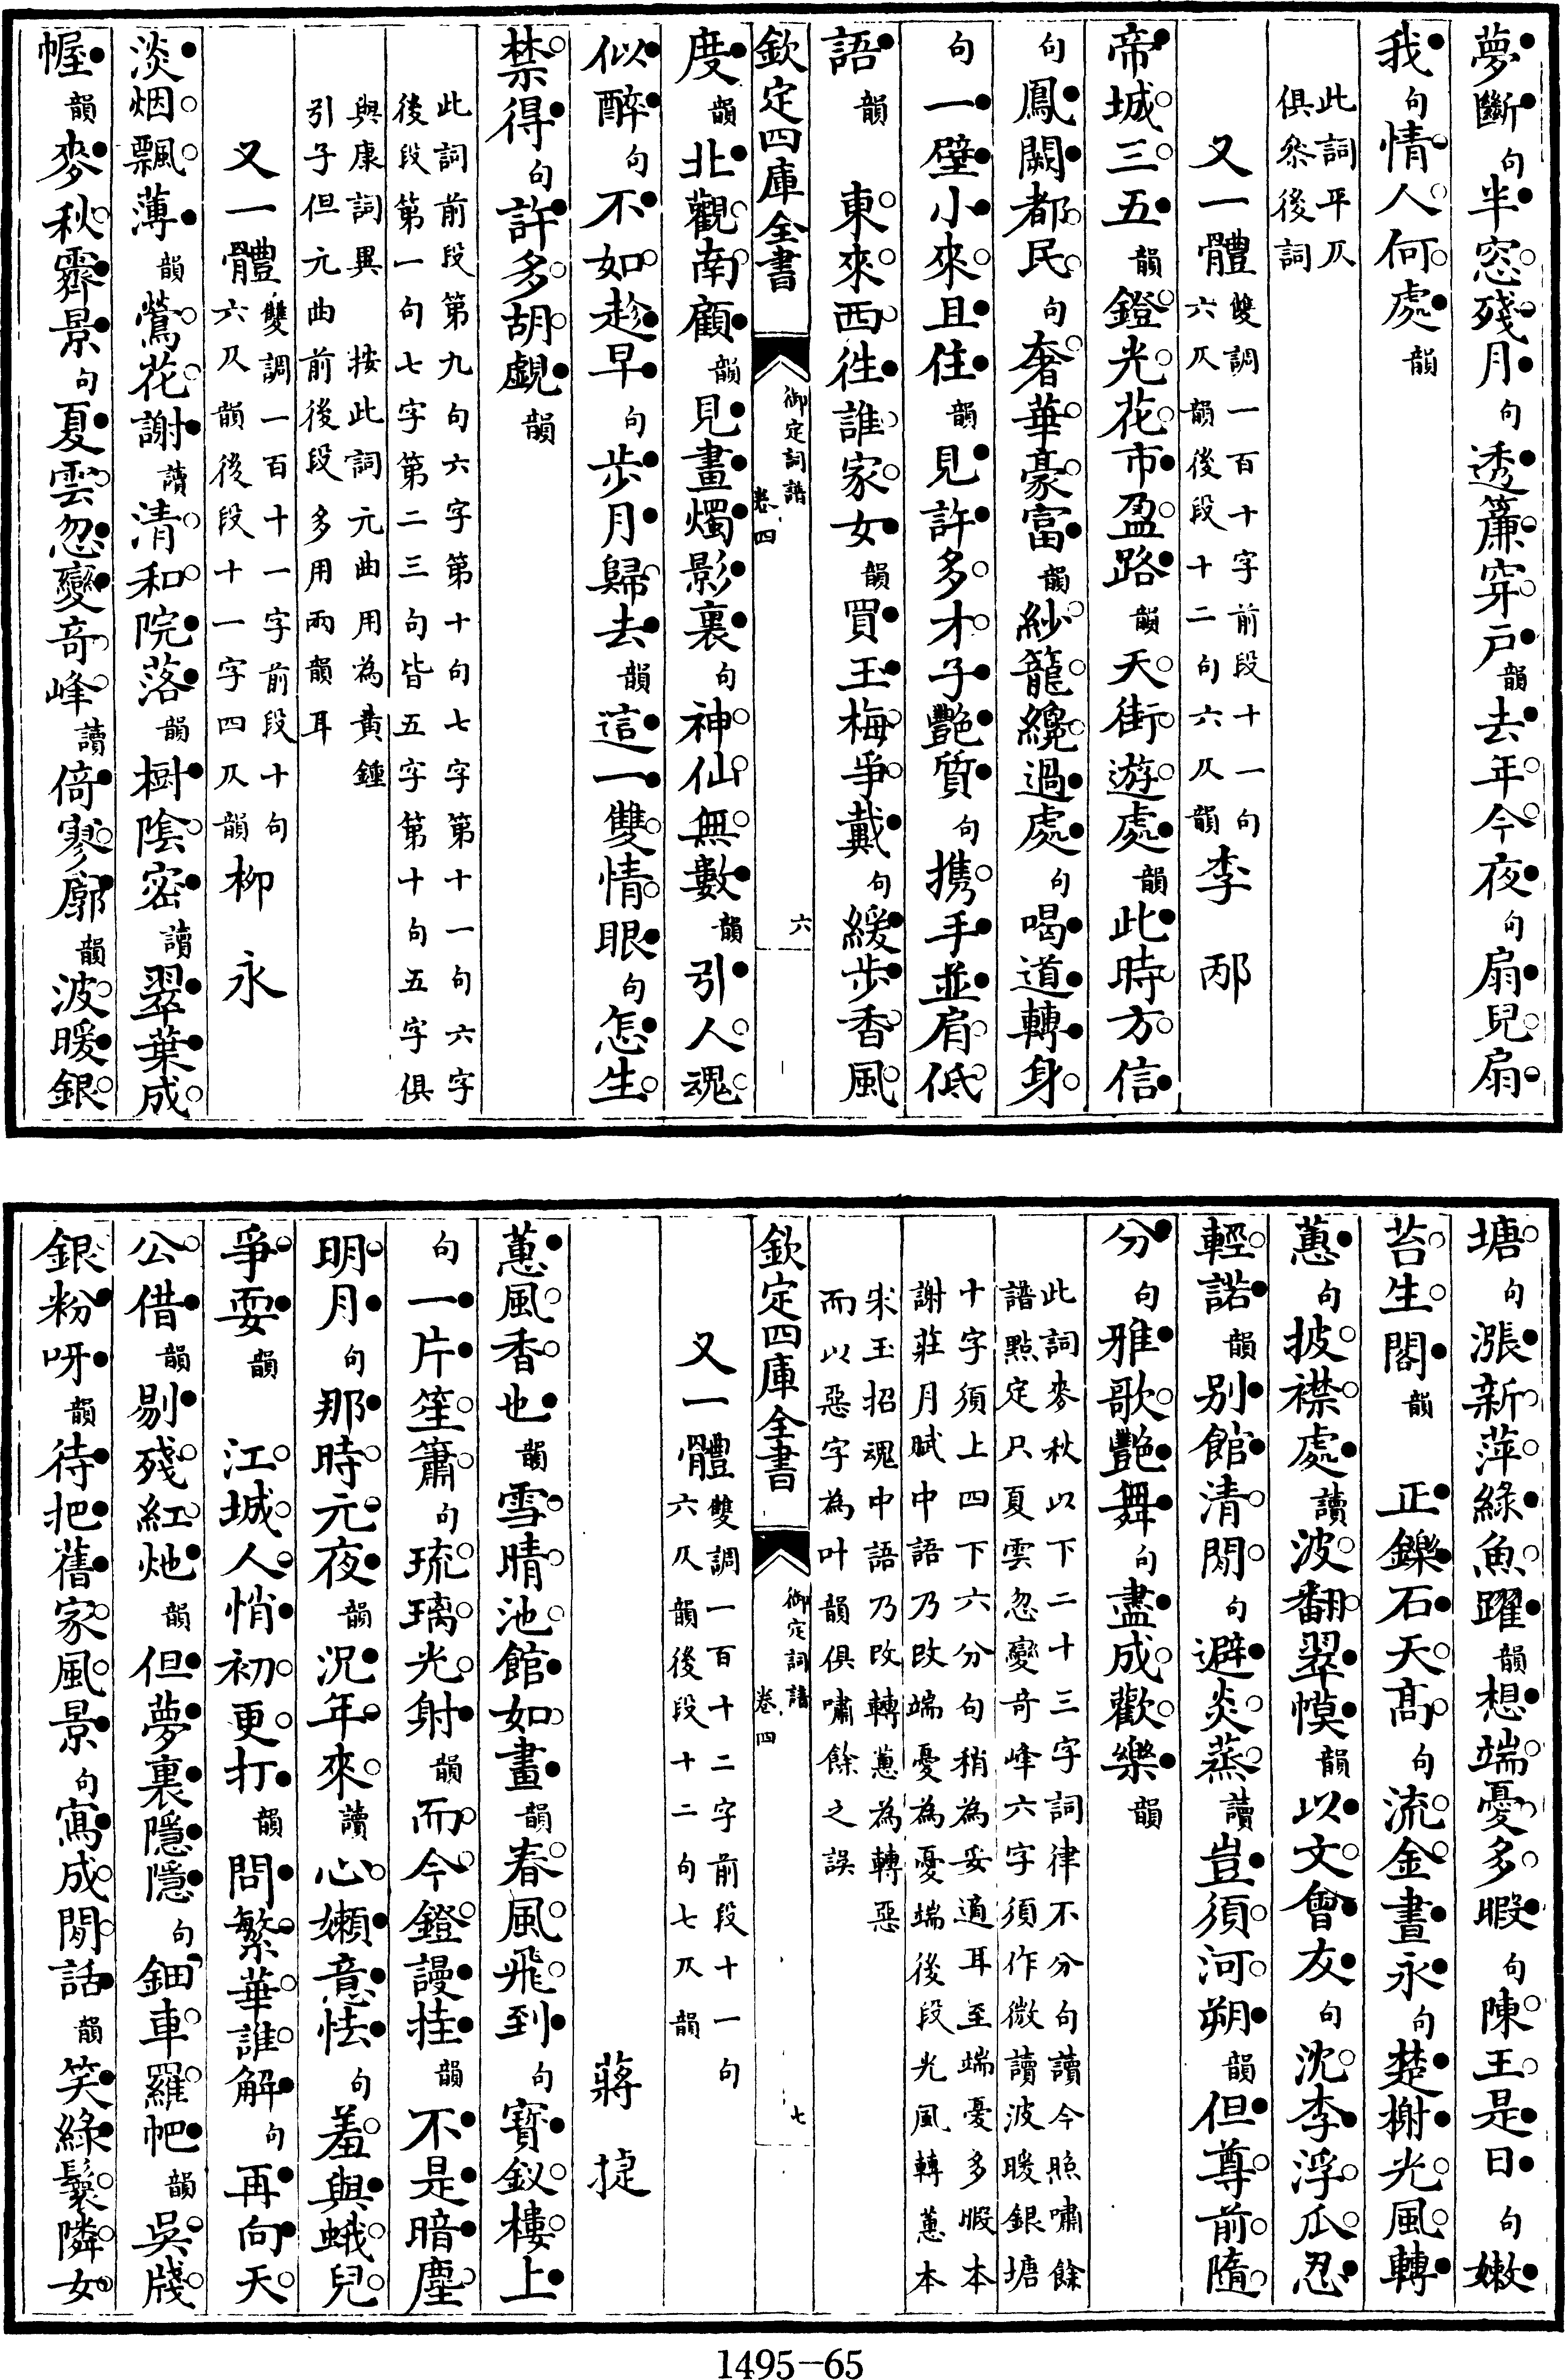 夢斷句半窓殘月句透簾穿戸韻去年今夜句扇兒扇
我句情人何處韻
此詞平仄
俱叅後詞
又一體
雙調一百十字前段十一句
六仄韻後段十二句六仄韻
李邴
帝城三五韻鐙光花市盈路韻天街遊處韻此時方信
句鳳闕都民句奢華豪富韻紗籠纔過處句喝道轉身
句一壁小來且住韻見許多才子艶質句携手並肩低
語韻東來西徃誰家女韻買玉梅爭戴句緩步香風
欽定四庫全書
御定詞譜
卷四
六
度韻北觀南顧韻見畫燭影裏句神仙無數韻引人魂
似醉句不如趁早句步月歸去韻這一雙情眼句怎生
禁得句許多胡覷韻
此詞前段第九句六字第十句七字第十一句六字
後段第一句七字第二三句皆五字第十句五字俱
與康詞異 按此詞元曲用為黄鍾
引子但元曲前後段多用兩韻耳
又一體
雙調一百十一字前段十句
六仄韻後段十一字四仄韻
柳永
淡烟飄薄韻鶯花謝讀清和院落韻樹陰密讀翠葉成
幄韻麥秋霽景句夏雲忽變竒峰讀倚寥廓韻波暖銀
塘句漲新萍綠魚躍韻想端憂多暇句陳王是日句嫩
苔生閣韻正鑠石天髙句流金晝永句楚榭光風轉
蕙句披襟處讀波翻翠幙韻以文會友句沈李浮瓜忍
輕諾韻别館清閒句避炎蒸讀豈須河朔韻但尊前隨
分句雅歌艷舞句盡成歡樂韻
此詞麥秋以下二十三字詞律不分句讀今照嘯餘
譜點定只夏雲忽變竒峰六字須作微讀波暖銀塘
十字須上四下六分句稍為妥適耳至端憂多暇本
謝莊月賦中語乃改端憂為憂端後段光風轉蕙本
宋玉招魂中語乃改轉蕙為轉惡
而以惡字為叶韻俱嘯餘之誤
欽定四庫全書
御定詞譜
卷四
七
又一體
雙調一百十二字前段十一句
六仄韻後段十二句七仄韻
蔣捷
蕙風香也韻雪晴池館如畫韻春風飛到句寳釵樓上
句一片笙簫句琉璃光射韻而今鐙謾挂韻不是暗塵
明月句那時元夜韻況年來讀心嬾意怯句羞與蛾兒
爭耍韻江城人悄初更打韻問繁華誰解句再向天
公借韻剔殘紅灺韻但夢裏隱隱句鈿車羅帊韻吳牋
銀粉呀韻待把舊家風景句寫成閒話韻笑綠鬟隣女
1495—65